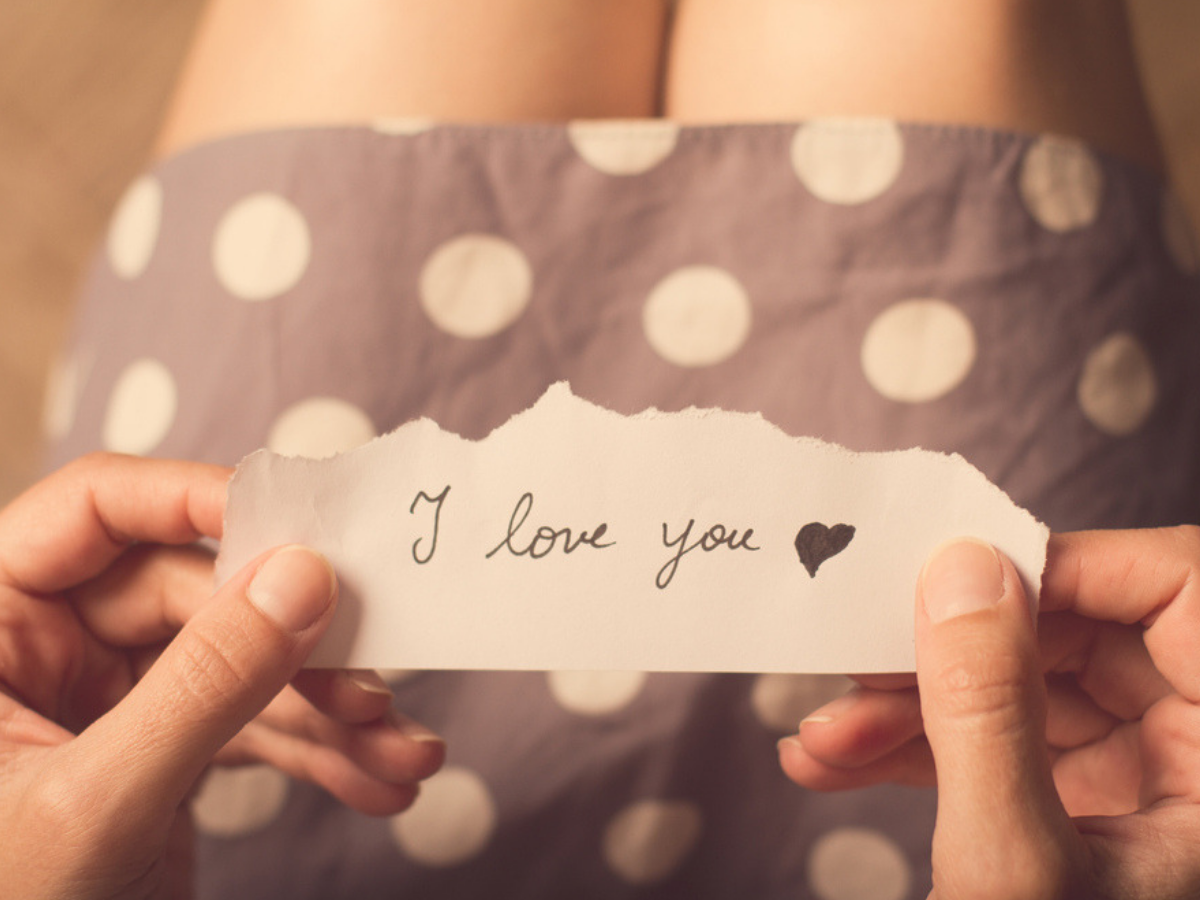 I love you ♥